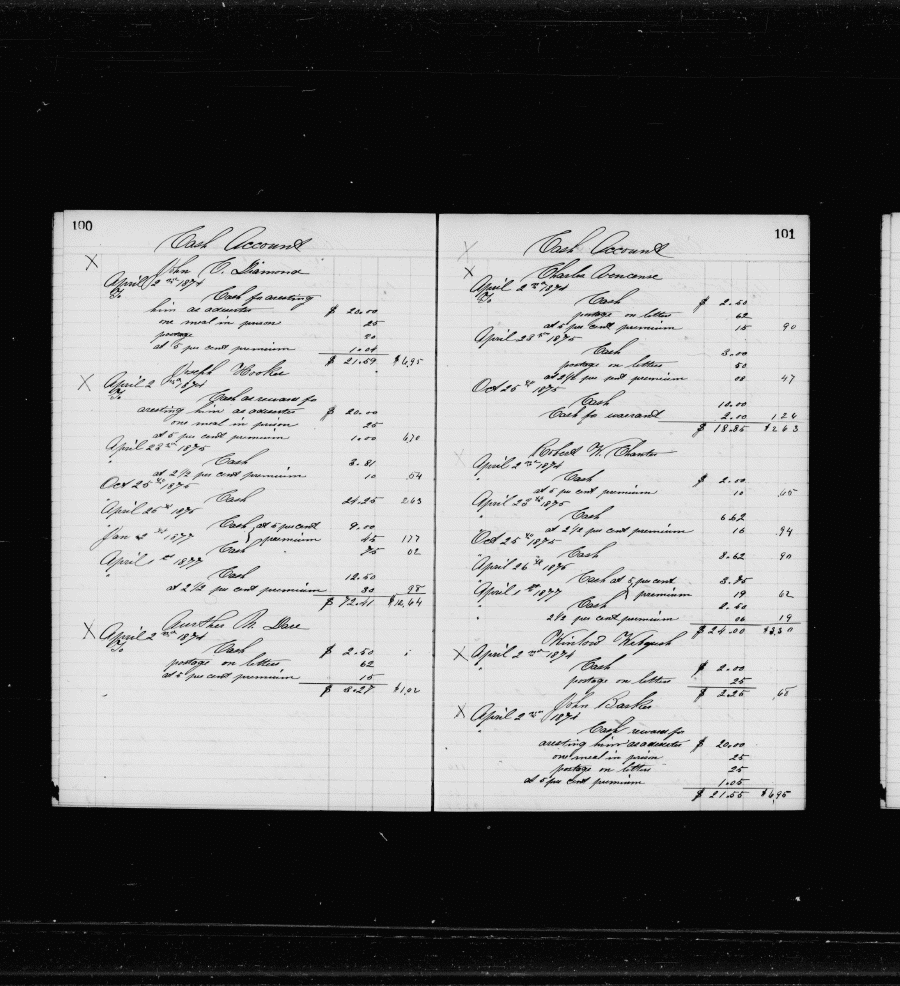 100
Cash Account
X
John C. Diamond
April 2nd 1874
To Cash for aresting
him as aduster $ 20.00
one meal in prison 25
postage 30
at 5 per cent premium 1.04
$ 21.59 $6,95
Joseph Hooker
X April 2nd 1874
To Cash as reward for
aresting him as aduster $ 20.00
one meal in prison 25
at 5 per cent premium 1.00 6.70
April 23rd 1875
" Cash 3.81
at 2 1/2 per cent premium 10 .54
Oct 25th 1875
" Cash 24.25 2.63
April 25th 1876
" Cash at 5 per cent 9.00
premium 45 1.77
Jan 2nd 1877
Cash 75 02
April 1st 1877
" Cash 12.50
at 2 1/2 per cent premium 30 98
$ 72.41 $12,64
X
April 2nd 1874
To Cash $ 2.50
postage on letters 62
at 5 per cent premium 15
$ 3.27 $1,02
101
X Cash Account
X Charles
April 2nd 1874
To Cash $ 2.50
postage on letters 62
at 5 per cent premium 15 90
April 23rd 1875
Cash 3.00
postage on letters 50
at 2 1/2 per cent premium 08 47
Oct 25th 1875
Cash 10.00
Cash for warrant 2.00 1,26
$ 18.85 $2 63
X Robert
April 2nd 1874
" Cash $ 2.00
at 5 per cent premium 10 65
April 23rd 1875
" Cash 6.62
at 2 1/2 per cent premium 16 .94
Oct 25th 1875
" Cash 8.62 90
April 26th 1876
" Cash at 5 per cent 3.75
premium 19 62
April 1st 1877
" Cash 2.50
2 1/2 per cent premium 06 19
$ 24.00 $3,30
X
April 2nd 1874
" Cash $ 2.00
postage on letters 25
$ 2.25 68
John Barker
X April 2nd 1874
" Cash reward for
aresting him as aduster $ 20.00
one meal in prison 25
postage on letters 25
at 5 per cent premium 1.05
$ 21.55 $6,95